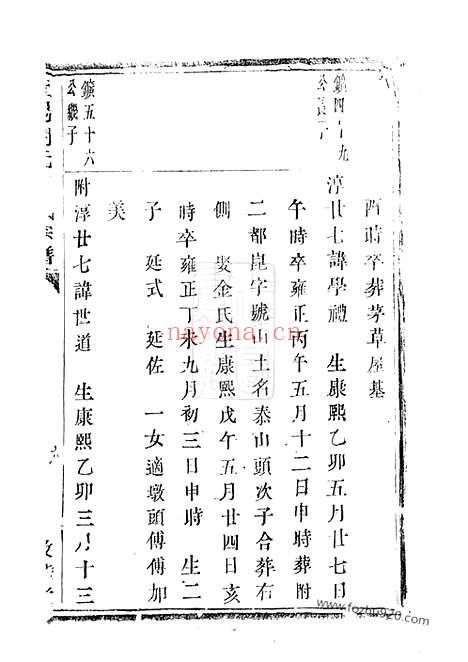 鑛四十九
公長子
酉時卒葬茅草屋基
淳廿七諱學禮 生康熙乙卯五月廿七日
午時卒雍正丙午五月十二日申時葬附
二都崑字號山土名泰山頭次子合葬右
側 娶金氏生康熙戊午五月廿四日亥
時卒雍正丁未九月初三日申時 生二
子 延式 延佐 一女適墩頭傅傅加
美
鑛五十六
公繼子
附淳廿七諱世道 生康熙乙卯三月十三
宗譜
nayona.cn
www.fozhu920.com